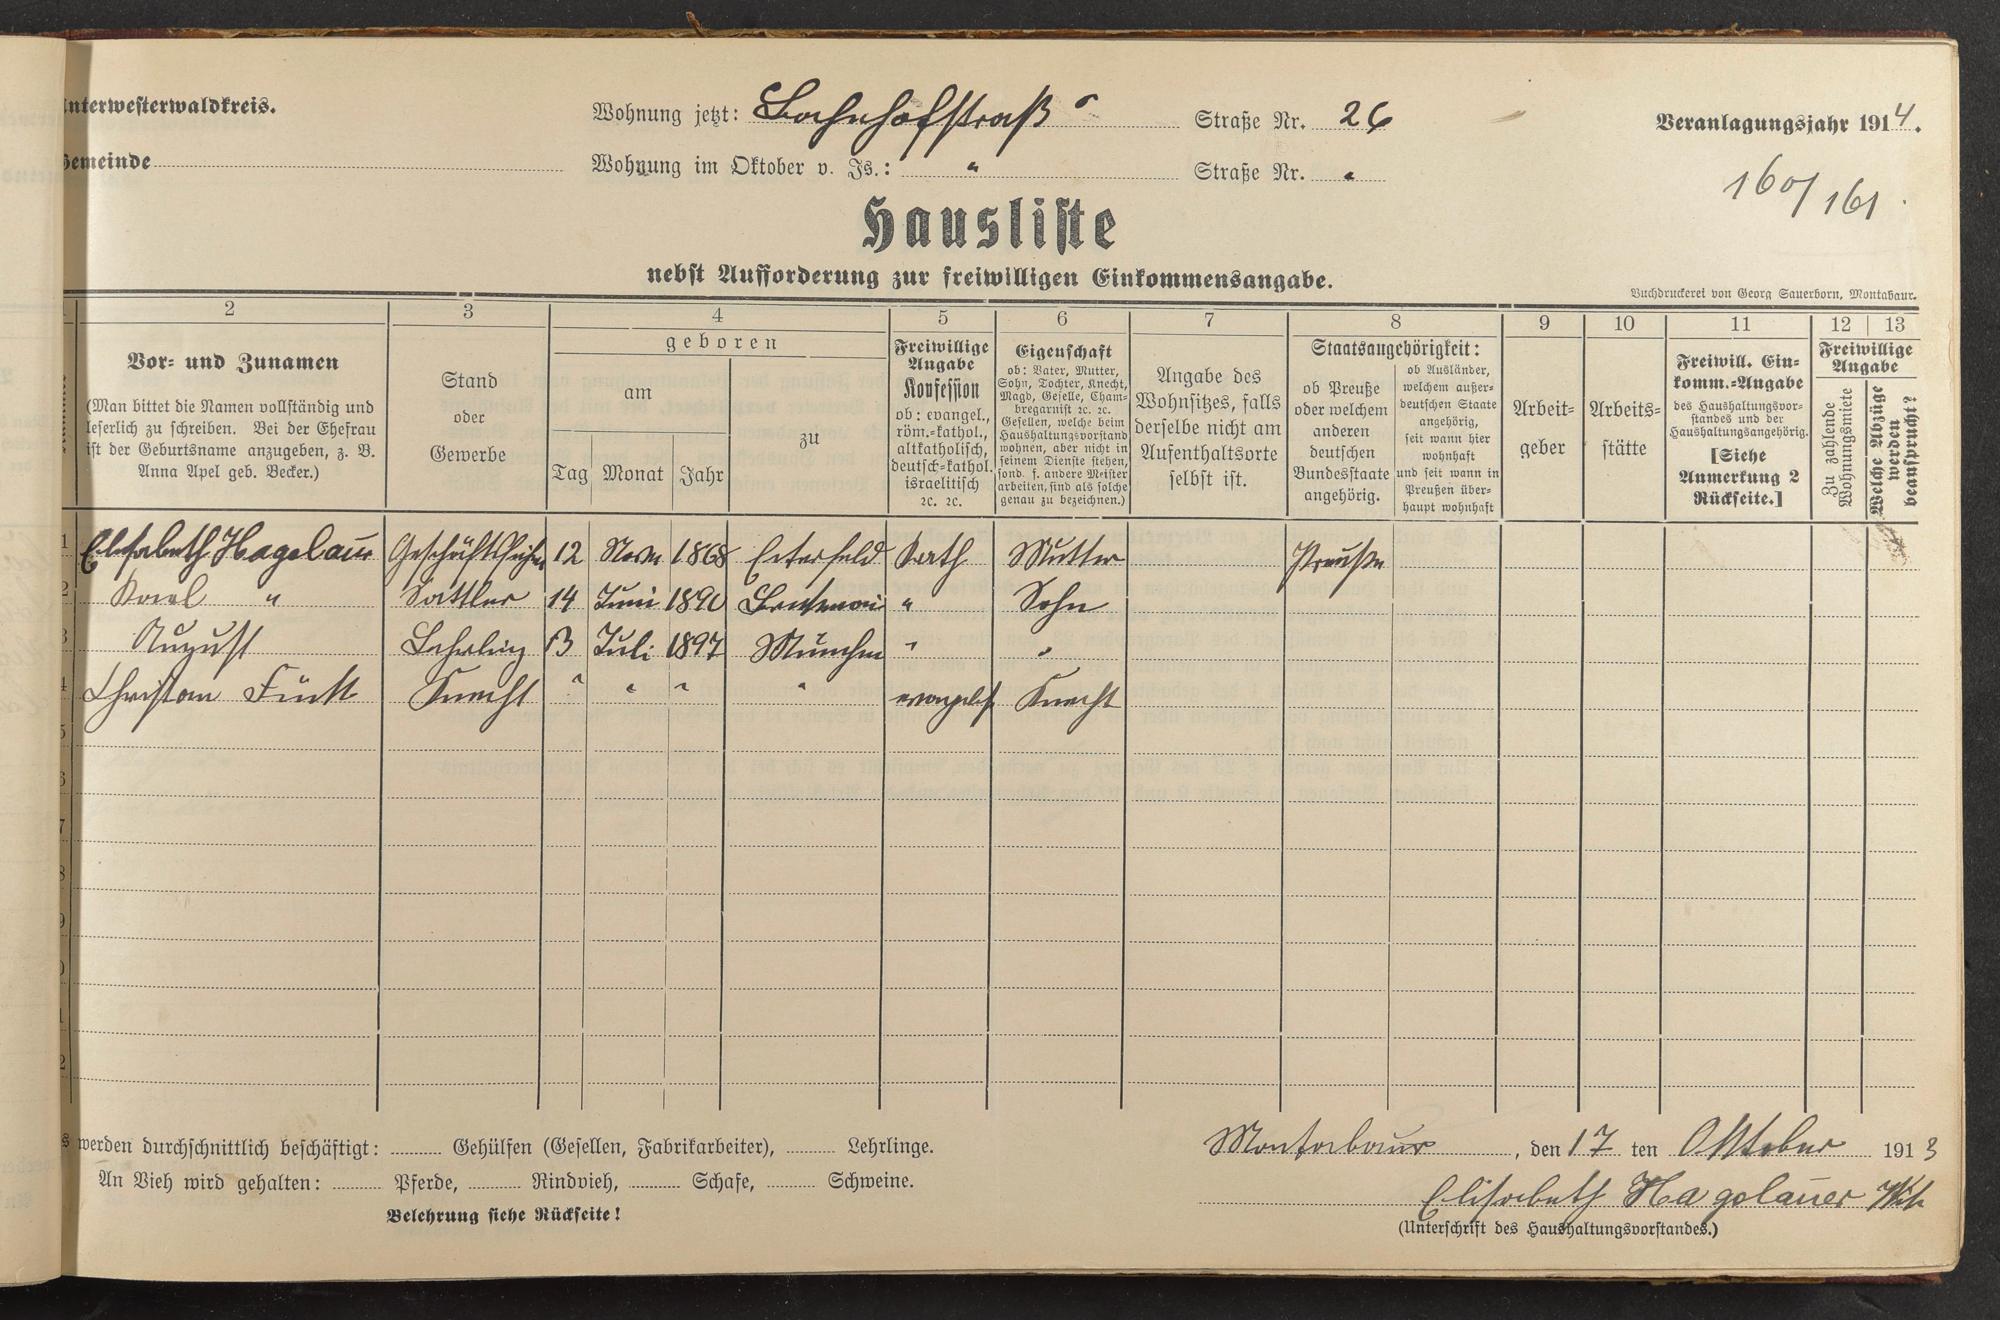 Unterwesterwaldkreis.
Wohnung jetzt: Bahnhofstraße Straße Nr. 26
Veranlagungsjahr 1914.
Gemeinde
Wohnung im Oktober v. Js.: " Straße Nr. "
160/161
Hausliste
nebst Aufforderung zur freiwilligen Einkommensangabe.
Buchdruckerei von Georg Sauerborn, Montabaur.
2 3 4 5 6 7 8 9 10 11 12 13
Vor- und Zunamen
(Man bittet die Namen vollständig und
leserlich zu schreiben. Bei der Ehefrau
ist der Geburtsname anzugeben, z. B.
Anna Apel geb. Becker.)
Stand
oder
Gewerbe
geboren
am
zu
Tag Monat Jahr
Freiwillige
Angabe
Konfession
ob: evangel.,
röm.-kathol.,
altkatholisch,
deutsch-kathol.
israelitisch
ꝛc. ꝛc.
Eigenschaft
ob: Vater, Mutter,
Sohn, Tochter, Knecht,
Magd, Geselle, Cham-
bregarnist ꝛc. ꝛc.
Gesellen, welche beim
Haushaltungsvorstand
wohnen, aber nicht in
seinem Dienste stehen,
sond. f. andere Meister
arbeiten, sind als solche
genau zu bezeichnen.)
Angabe des
Wohnsitzes, falls
derselbe nicht am
Aufenthaltsorte
selbst ist.
Staatsangehörigkeit:
ob Preuße
oder welchem
anderen
deutschen
Bundesstaate
angehörig.
ob Ausländer,
welchem außer-
deutschen Staate
angehörig,
seit wann hier
wohnhaft
und seit wann in
Preußen über-
haupt wohnhaft
Arbeit-
geber
Arbeits-
stätte
Freiwill. Ein-
komm.-Angabe
des Haushaltungsvor-
standes und der
Haushaltungsangehörig.
[Siehe
Anmerkung 2
Rückseite.]
Freiwillige
Angabe
Zu zahlende
Wohnungsmiete
Welche Abzüge
werden
beansprucht?
1 Elisabeth Hagelauer 12 Novm 1868 Eiterfeld Kath Mutter Preuße
2 Karl " Sattler 14 Juni 1890 " Sohn
3 August Lehrling 13 Juli 1897 München " "
4 Christian Knecht " " " " evangelisch Knecht
5
6
7
8
9
0
1
2
werden durchschnittlich beschäftigt: Gehülfen (Gesellen, Fabrikarbeiter), Lehrlinge.
Montabaur, den 17 ten Oktober 1913
An Vieh wird gehalten: Pferde, Rindvieh, Schafe, Schweine.
Elisabeth Hagelauer Wtw
Belehrung siehe Rückseite!
(Unterschrift des Haushaltungsvorstandes.)